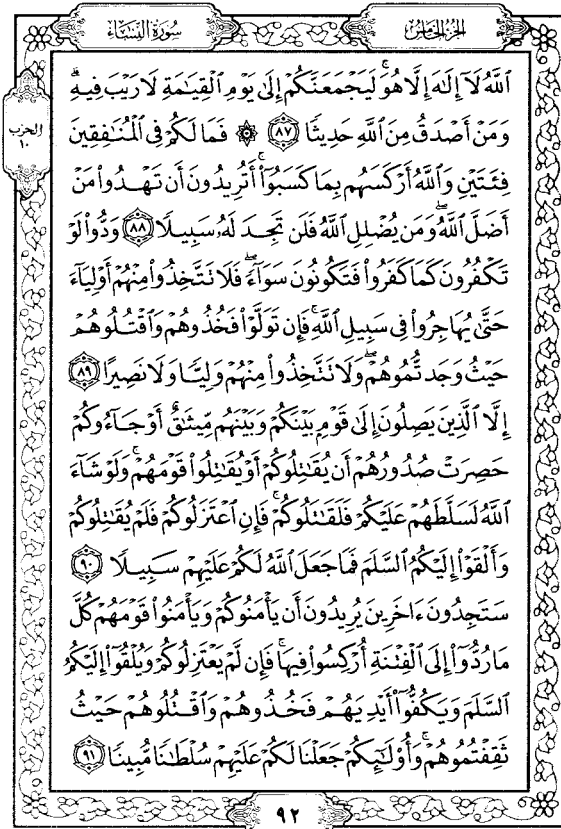 سُورَةُ النِّسَاءِ
الجُزْءُ الخَامِسُ
الحزب
١٠
ٱللَّهُ لَآ إِلَٰهَ إِلَّا هُوَۚ لَيَجۡمَعَنَّكُمۡ إِلَىٰ يَوۡمِ ٱلۡقِيَٰمَةِ لَا رَيۡبَ فِيهِۗ
وَمَنۡ أَصۡدَقُ مِنَ ٱللَّهِ حَدِيثٗا ٨٧ ۞ فَمَا لَكُمۡ فِي ٱلۡمُنَٰفِقِينَ
فِئَتَيۡنِ وَٱللَّهُ أَرۡكَسَهُم بِمَا كَسَبُوٓاْۚ أَتُرِيدُونَ أَن تَهۡدُواْ مَنۡ
أَضَلَّ ٱللَّهُۖ وَمَن يُضۡلِلِ ٱللَّهُ فَلَن تَجِدَ لَهُۥ سَبِيلٗا ٨٨ وَدُّواْ لَوۡ
تَكۡفُرُونَ كَمَا كَفَرُواْ فَتَكُونُونَ سَوَآءٗۖ فَلَا تَتَّخِذُواْ مِنۡهُمۡ أَوۡلِيَآءَ
حَتَّىٰ يُهَاجِرُواْ فِي سَبِيلِ ٱللَّهِۚ فَإِن تَوَلَّوۡاْ فَخُذُوهُمۡ وَٱقۡتُلُوهُمۡ
حَيۡثُ وَجَدتُّمُوهُمۡۖ وَلَا تَتَّخِذُواْ مِنۡهُمۡ وَلِيّٗا وَلَا نَصِيرًا ٨٩
إِلَّا ٱلَّذِينَ يَصِلُونَ إِلَىٰ قَوۡمِۭ بَيۡنَكُمۡ وَبَيۡنَهُم مِّيثَٰقٌ أَوۡ جَآءُوكُمۡ
حَصِرَتۡ صُدُورُهُمۡ أَن يُقَٰتِلُوكُمۡ أَوۡ يُقَٰتِلُواْ قَوۡمَهُمۡۚ وَلَوۡ شَآءَ
ٱللَّهُ لَسَلَّطَهُمۡ عَلَيۡكُمۡ فَلَقَٰتَلُوكُمۡۚ فَإِنِ ٱعۡتَزَلُوكُمۡ فَلَمۡ يُقَٰتِلُوكُمۡ
وَأَلۡقَوۡاْ إِلَيۡكُمُ ٱلسَّلَمَ فَمَا جَعَلَ ٱللَّهُ لَكُمۡ عَلَيۡهِمۡ سَبِيلٗا ٩٠
سَتَجِدُونَ ءَاخَرِينَ يُرِيدُونَ أَن يَأۡمَنُوكُمۡ وَيَأۡمَنُواْ قَوۡمَهُمۡ كُلَّ
مَا رُدُّوٓاْ إِلَى ٱلۡفِتۡنَةِ أُرۡكِسُواْ فِيهَاۚ فَإِن لَّمۡ يَعۡتَزِلُوكُمۡ وَيُلۡقُوٓاْ إِلَيۡكُمُ
ٱلسَّلَمَ وَيَكُفُّوٓاْ أَيۡدِيَهُمۡ فَخُذُوهُمۡ وَٱقۡتُلُوهُمۡ حَيۡثُ
ثَقِفۡتُمُوهُمۡۚ وَأُوْلَٰٓئِكُمۡ جَعَلۡنَا لَكُمۡ عَلَيۡهِمۡ سُلۡطَٰنٗا مُّبِينٗا ٩١
٩٢